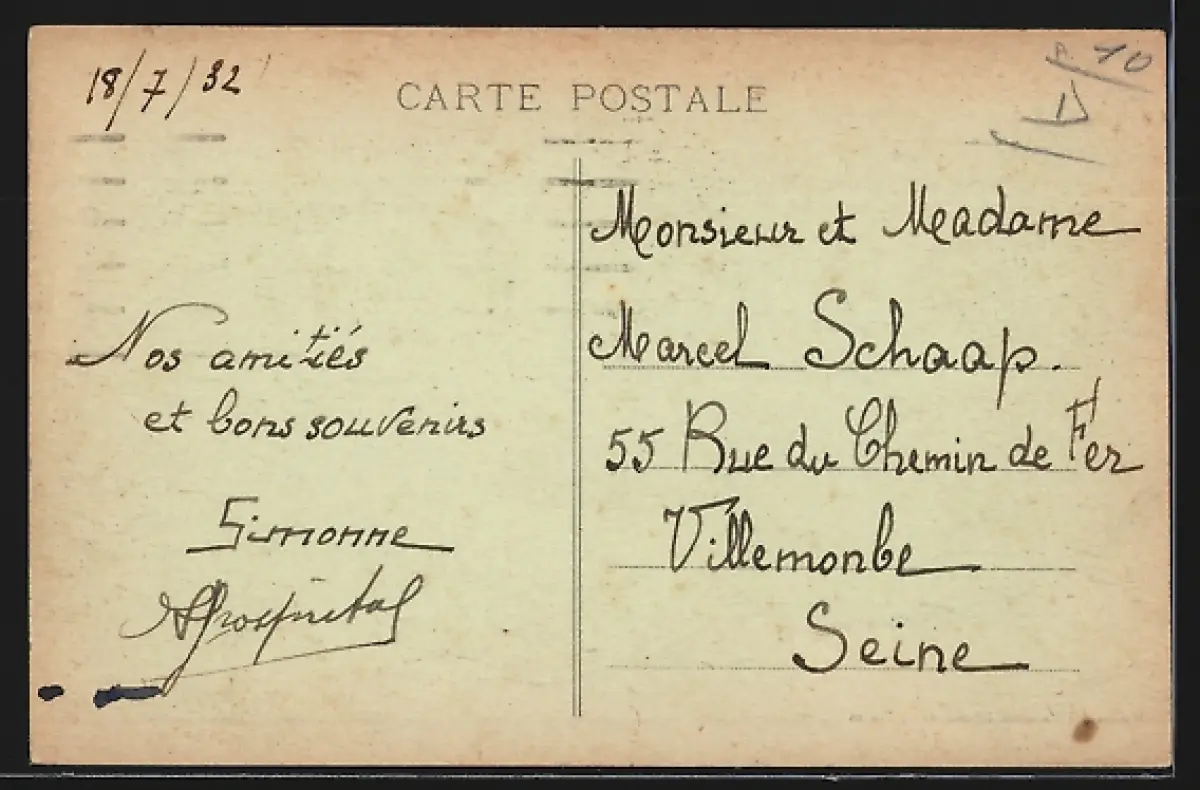 18/7/32
CARTE POSTALE
10
Nos amitiés
et bons souvenirs
Simonne
Monsieur et Madame
Marcel Schaap.
55 Rue du Chemin de Fer
Villemonbe
Seine